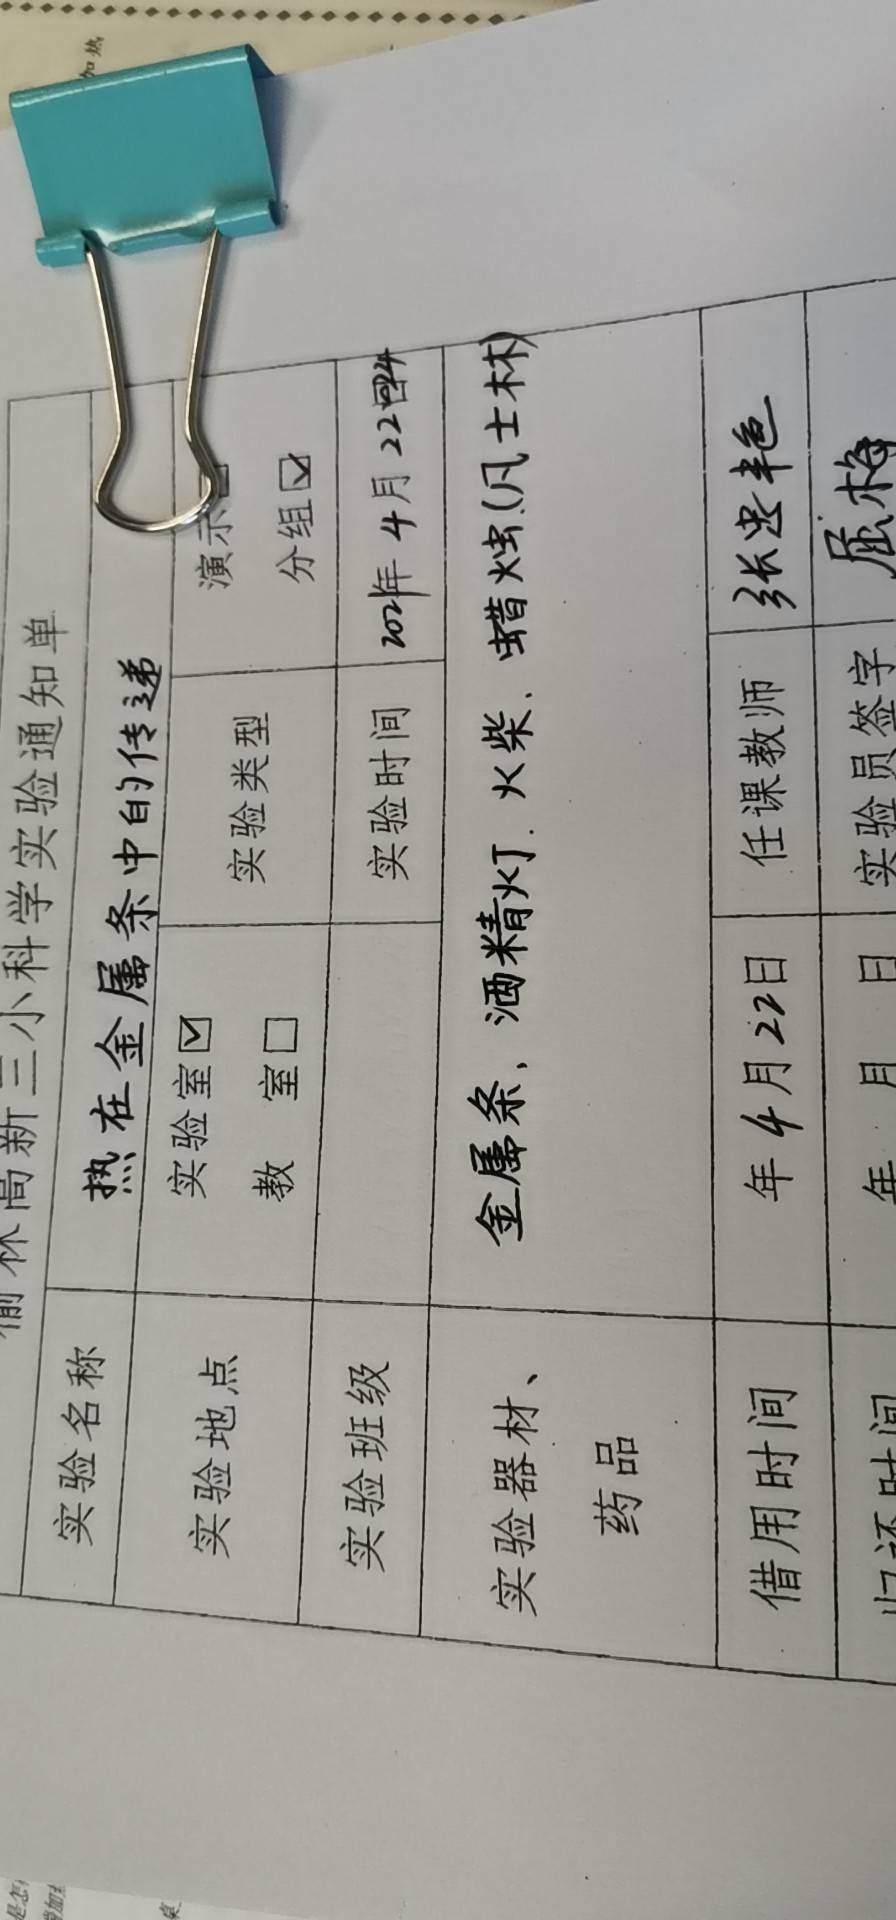 榆林高新三小科学实验通知单
实验名称 热在金属条中的传递
实验地点 实验室☑ 教 室☐ 实验类型 演示☐ 分组☑
实验班级 实验时间 2021年4月22日
实验器材、药品 金属条、酒精灯、火柴、蜡烛(凡士林)
借用时间 年4月22日 任课教师 张忠艳
归还时间 年 月 日 实验员签字 屈梅
加热